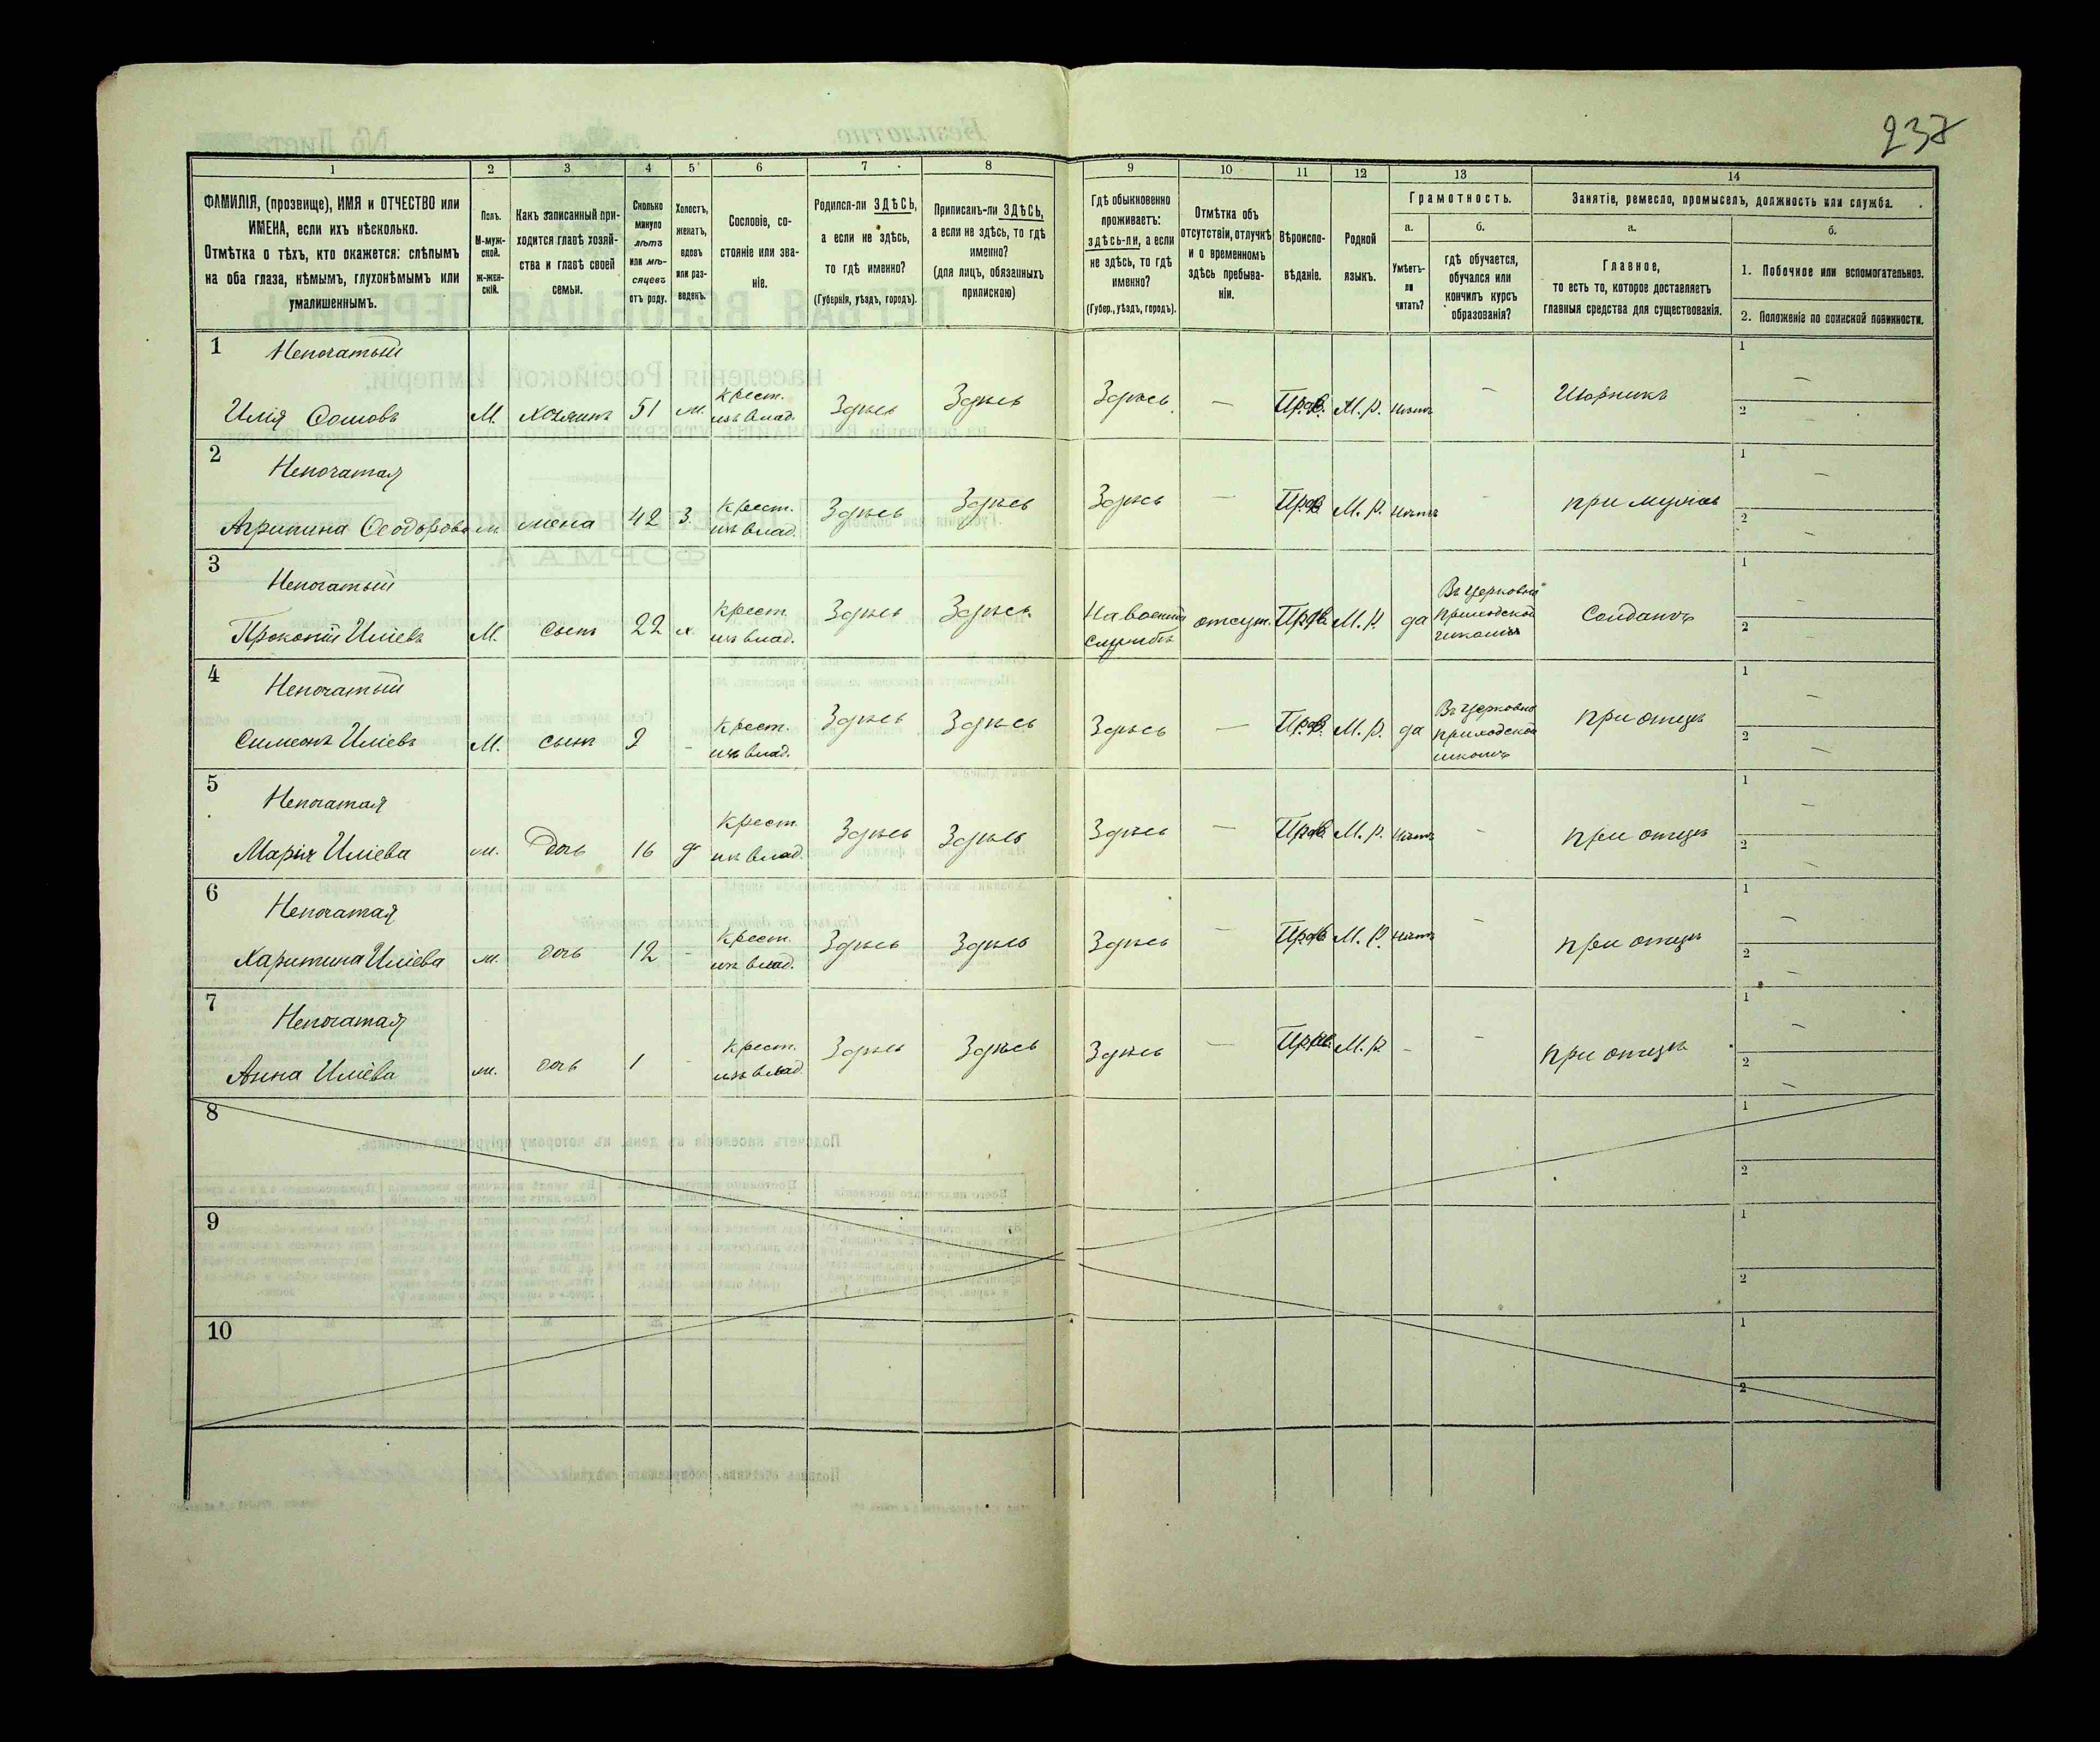 237
1
2
3
4
5
6
7
8
9
10
11
12
13
14
ФАМИЛІЯ, (прозвище), ИМЯ и ОТЧЕСТВО или
ИМЕНА, если ихъ нѣсколько.
Отмѣтка о тѣхъ, кто окажется: слѣпымъ
на оба глаза, нѣмымъ, глухонѣмымъ или
умалишеннымъ.
Полъ.
М-муж-
ской.
ж-жен-
скій.
Какъ записанный при-
ходится главѣ хозяй-
ства и главѣ своей
семьи.
Сколько
минуло
лѣтъ
или мѣ-
сяцевъ
отъ роду.
Холостъ,
женатъ,
вдовъ
или раз-
веденъ.
Сословіе, со-
стояніе или зва-
ніе.
Родился-ли ЗДѢСЬ,
а если не здѣсь,
то гдѣ именно?
(Губернія, уѣздъ, городъ).
Приписанъ-ли ЗДѢСЬ,
а если не здѣсь, то гдѣ
именно?
(для лицъ, обязанныхъ
припискою)
Гдѣ обыкновенно
проживаетъ:
здѣсь-ли, а если
не здѣсь, то гдѣ
именно?
(Губер., уѣздъ, городъ).
Отмѣтка объ
отсутствіи, отлучкѣ
и о временномъ
здѣсь пребыва-
ніи.
Вѣроиспо-
вѣданіе.
Родной
языкъ.
Грамотность.
а.
Умѣетъ-
ли
читать?
б.
гдѣ обучается,
обучался или
кончилъ курсъ
образованія?
Занятіе, ремесло, промыселъ, должность или служба.
а.
Главное,
то есть то, которое доставляетъ
главныя средства для существованія.
б.
1. Побочное или вспомогательное.
2. Положеніе по воинской повинности.
1 Непочатый
Илія М. хозяинъ 51 ж. Крест. изъ влад. Здѣсь Здѣсь Здѣсь — Прав. М. р. нѣтъ — — 1 — 2
2 Непочатая
Агрипина Ѳеодорова ж. жена 42 З. Крест. изъ влад. Здѣсь Здѣсь Здѣсь — Прав. М. р. нѣтъ — при мужѣ 1 — 2 —
3 Непочатый
Прокопій Иліевъ М. сынъ 22 х. Крест. изъ влад. Здѣсь Здѣсь На военной службѣ отсут. Прав. М. р. да Въ церковно приходской школѣ Солдатъ 1 — 2 —
4 Непочатый
Симеонъ Иліевъ М. сынъ 9 - Крест. изъ влад. Здѣсь Здѣсь Здѣсь — Прав. М. р. да Въ церковно приходской школѣ при отцѣ 1 — 2 —
5 Непочатая
Марія Иліева ж. Дочь 16 д Крест. изъ влад. Здѣсь Здѣсь Здѣсь — Прав. М. р. нѣтъ — при отцѣ 1 — 2 —
6 Непочатая
Харитина Иліева ж. дочь 12 - Крест. изъ влад. Здѣсь Здѣсь Здѣсь — Прав. М. р. нѣтъ — при отцѣ 1 — 2 —
7 Непочатая
Анна Иліева ж. дочь 1 - Крест. изъ влад. Здѣсь Здѣсь Здѣсь — Прав. М. р. — — при отцѣ 1 — 2 —
8 1 2
9 1 2
10 1 2